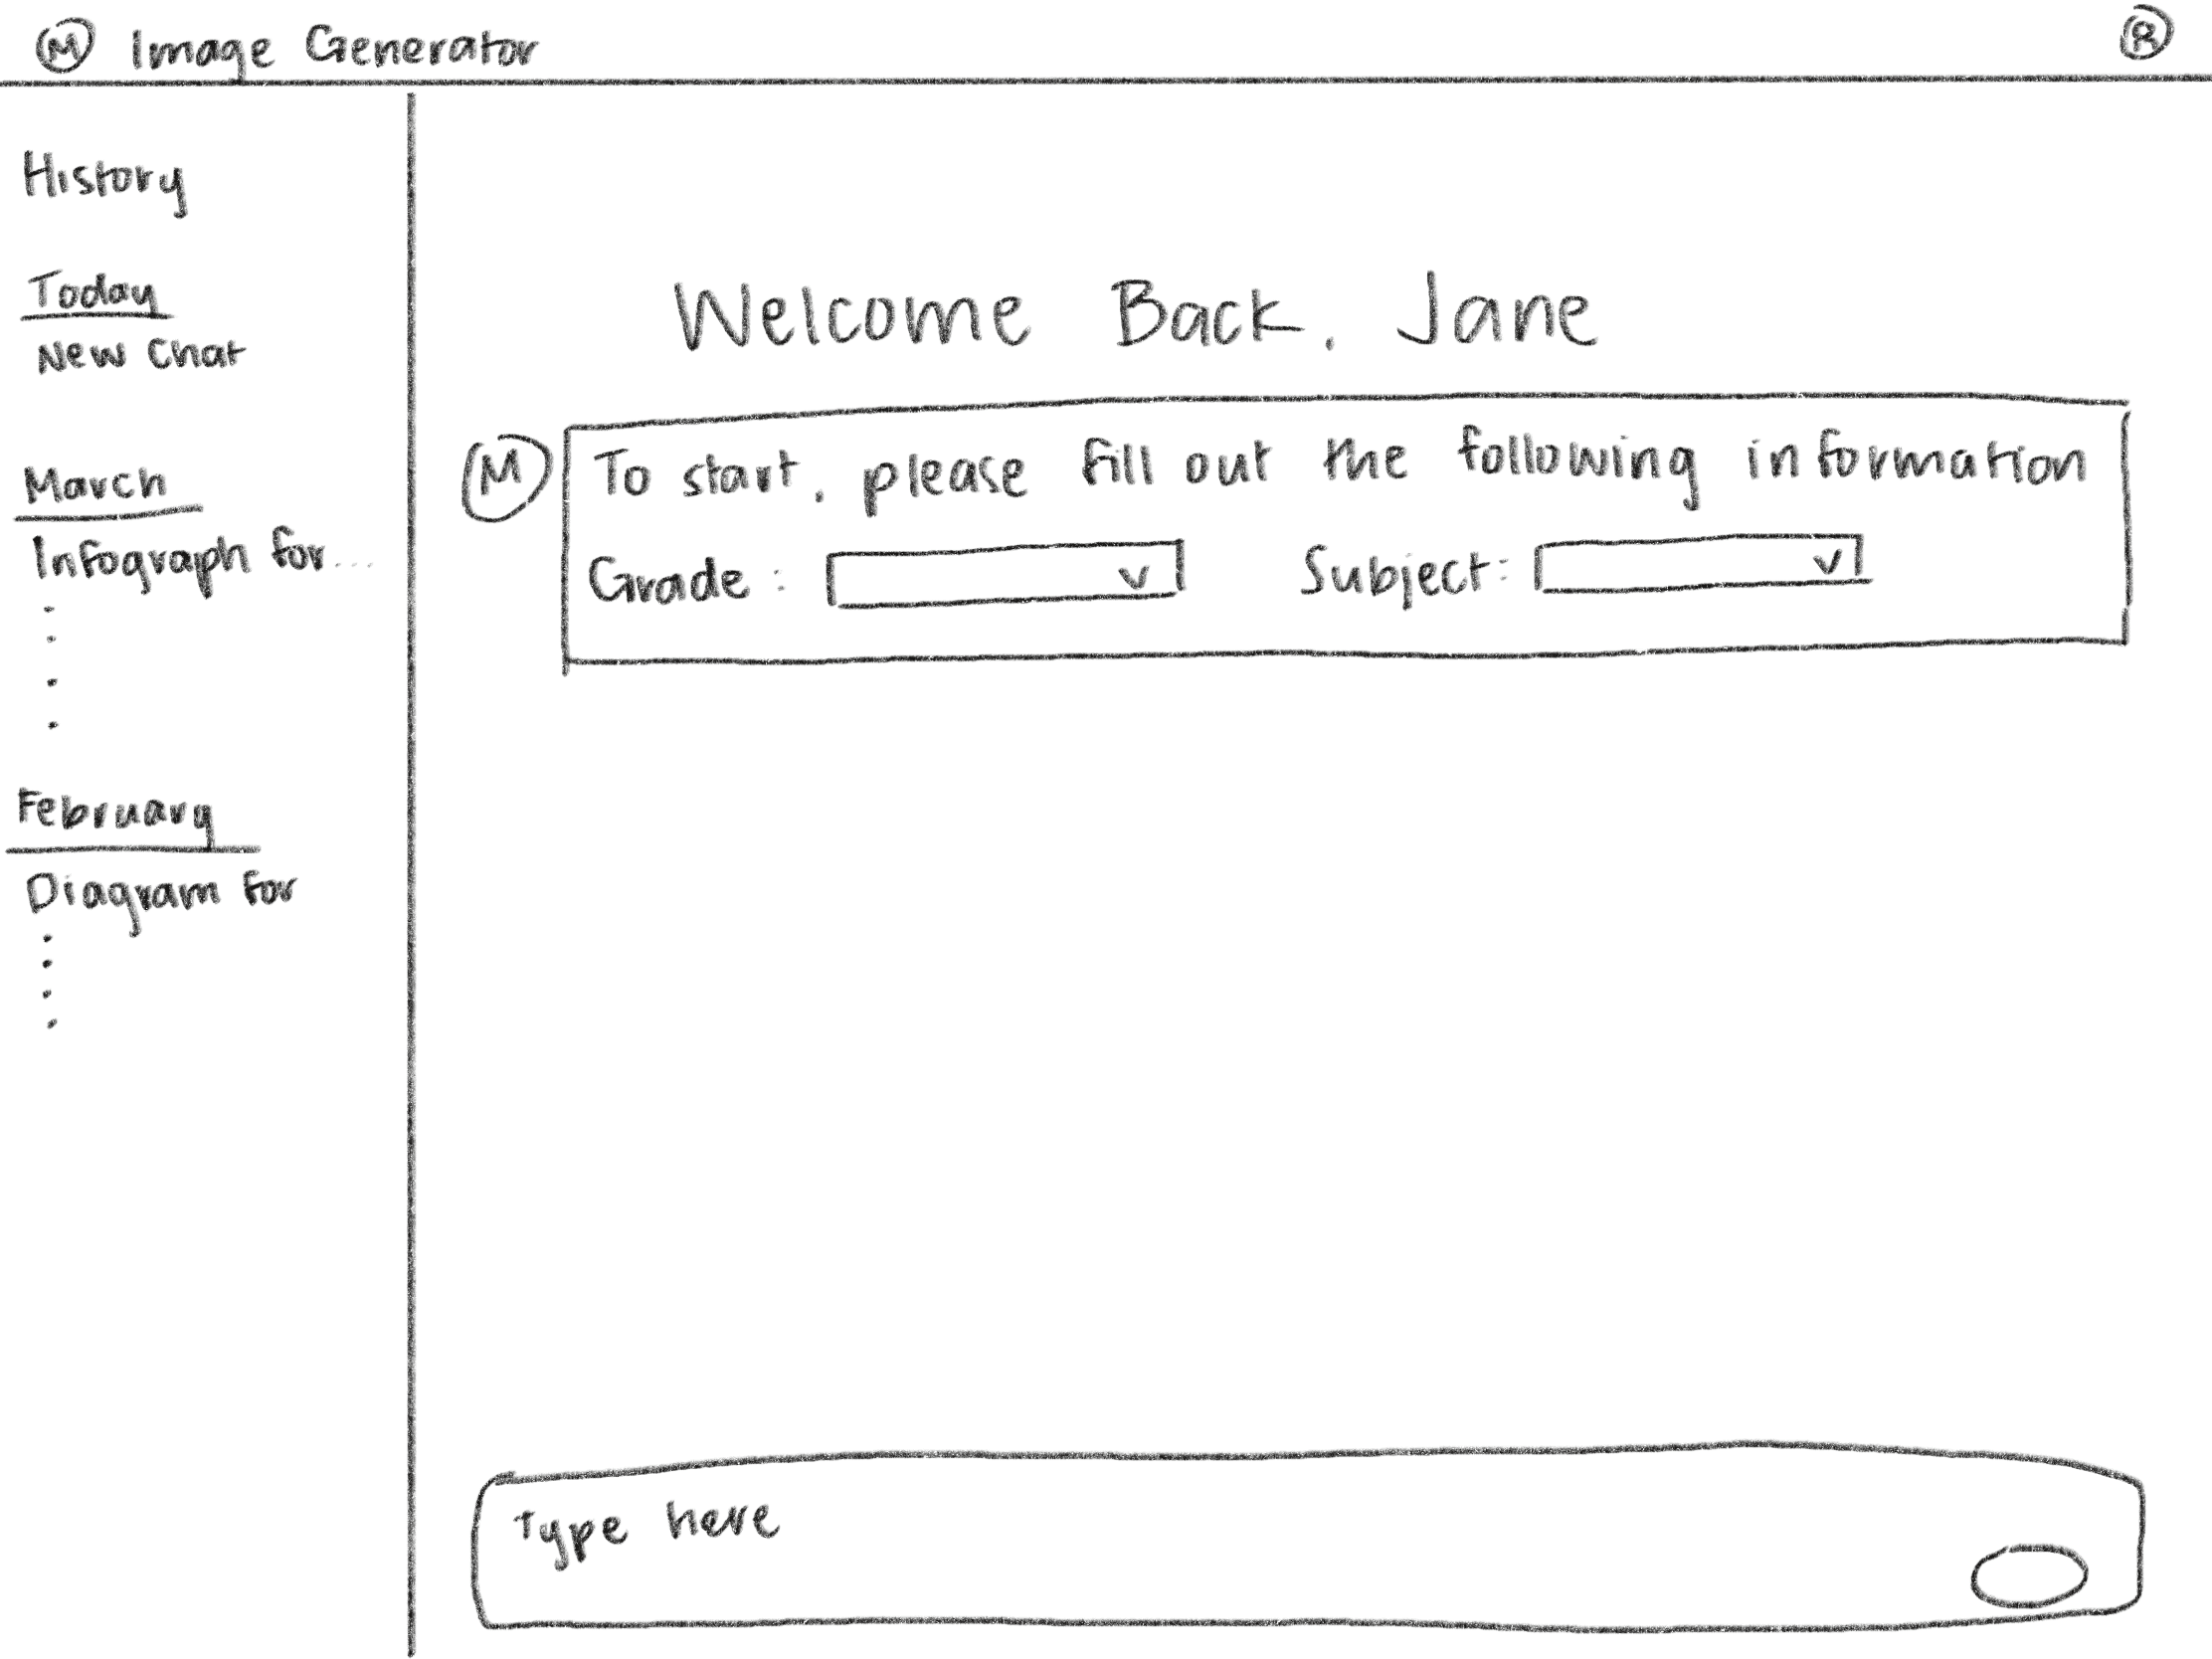 M Image Generator R
History
Today
New Chat
March
Infograph for...
February
Diagram for
Welcome Back, Jane
M
To start, please fill out the following information
Grade : v Subject: v
Type here